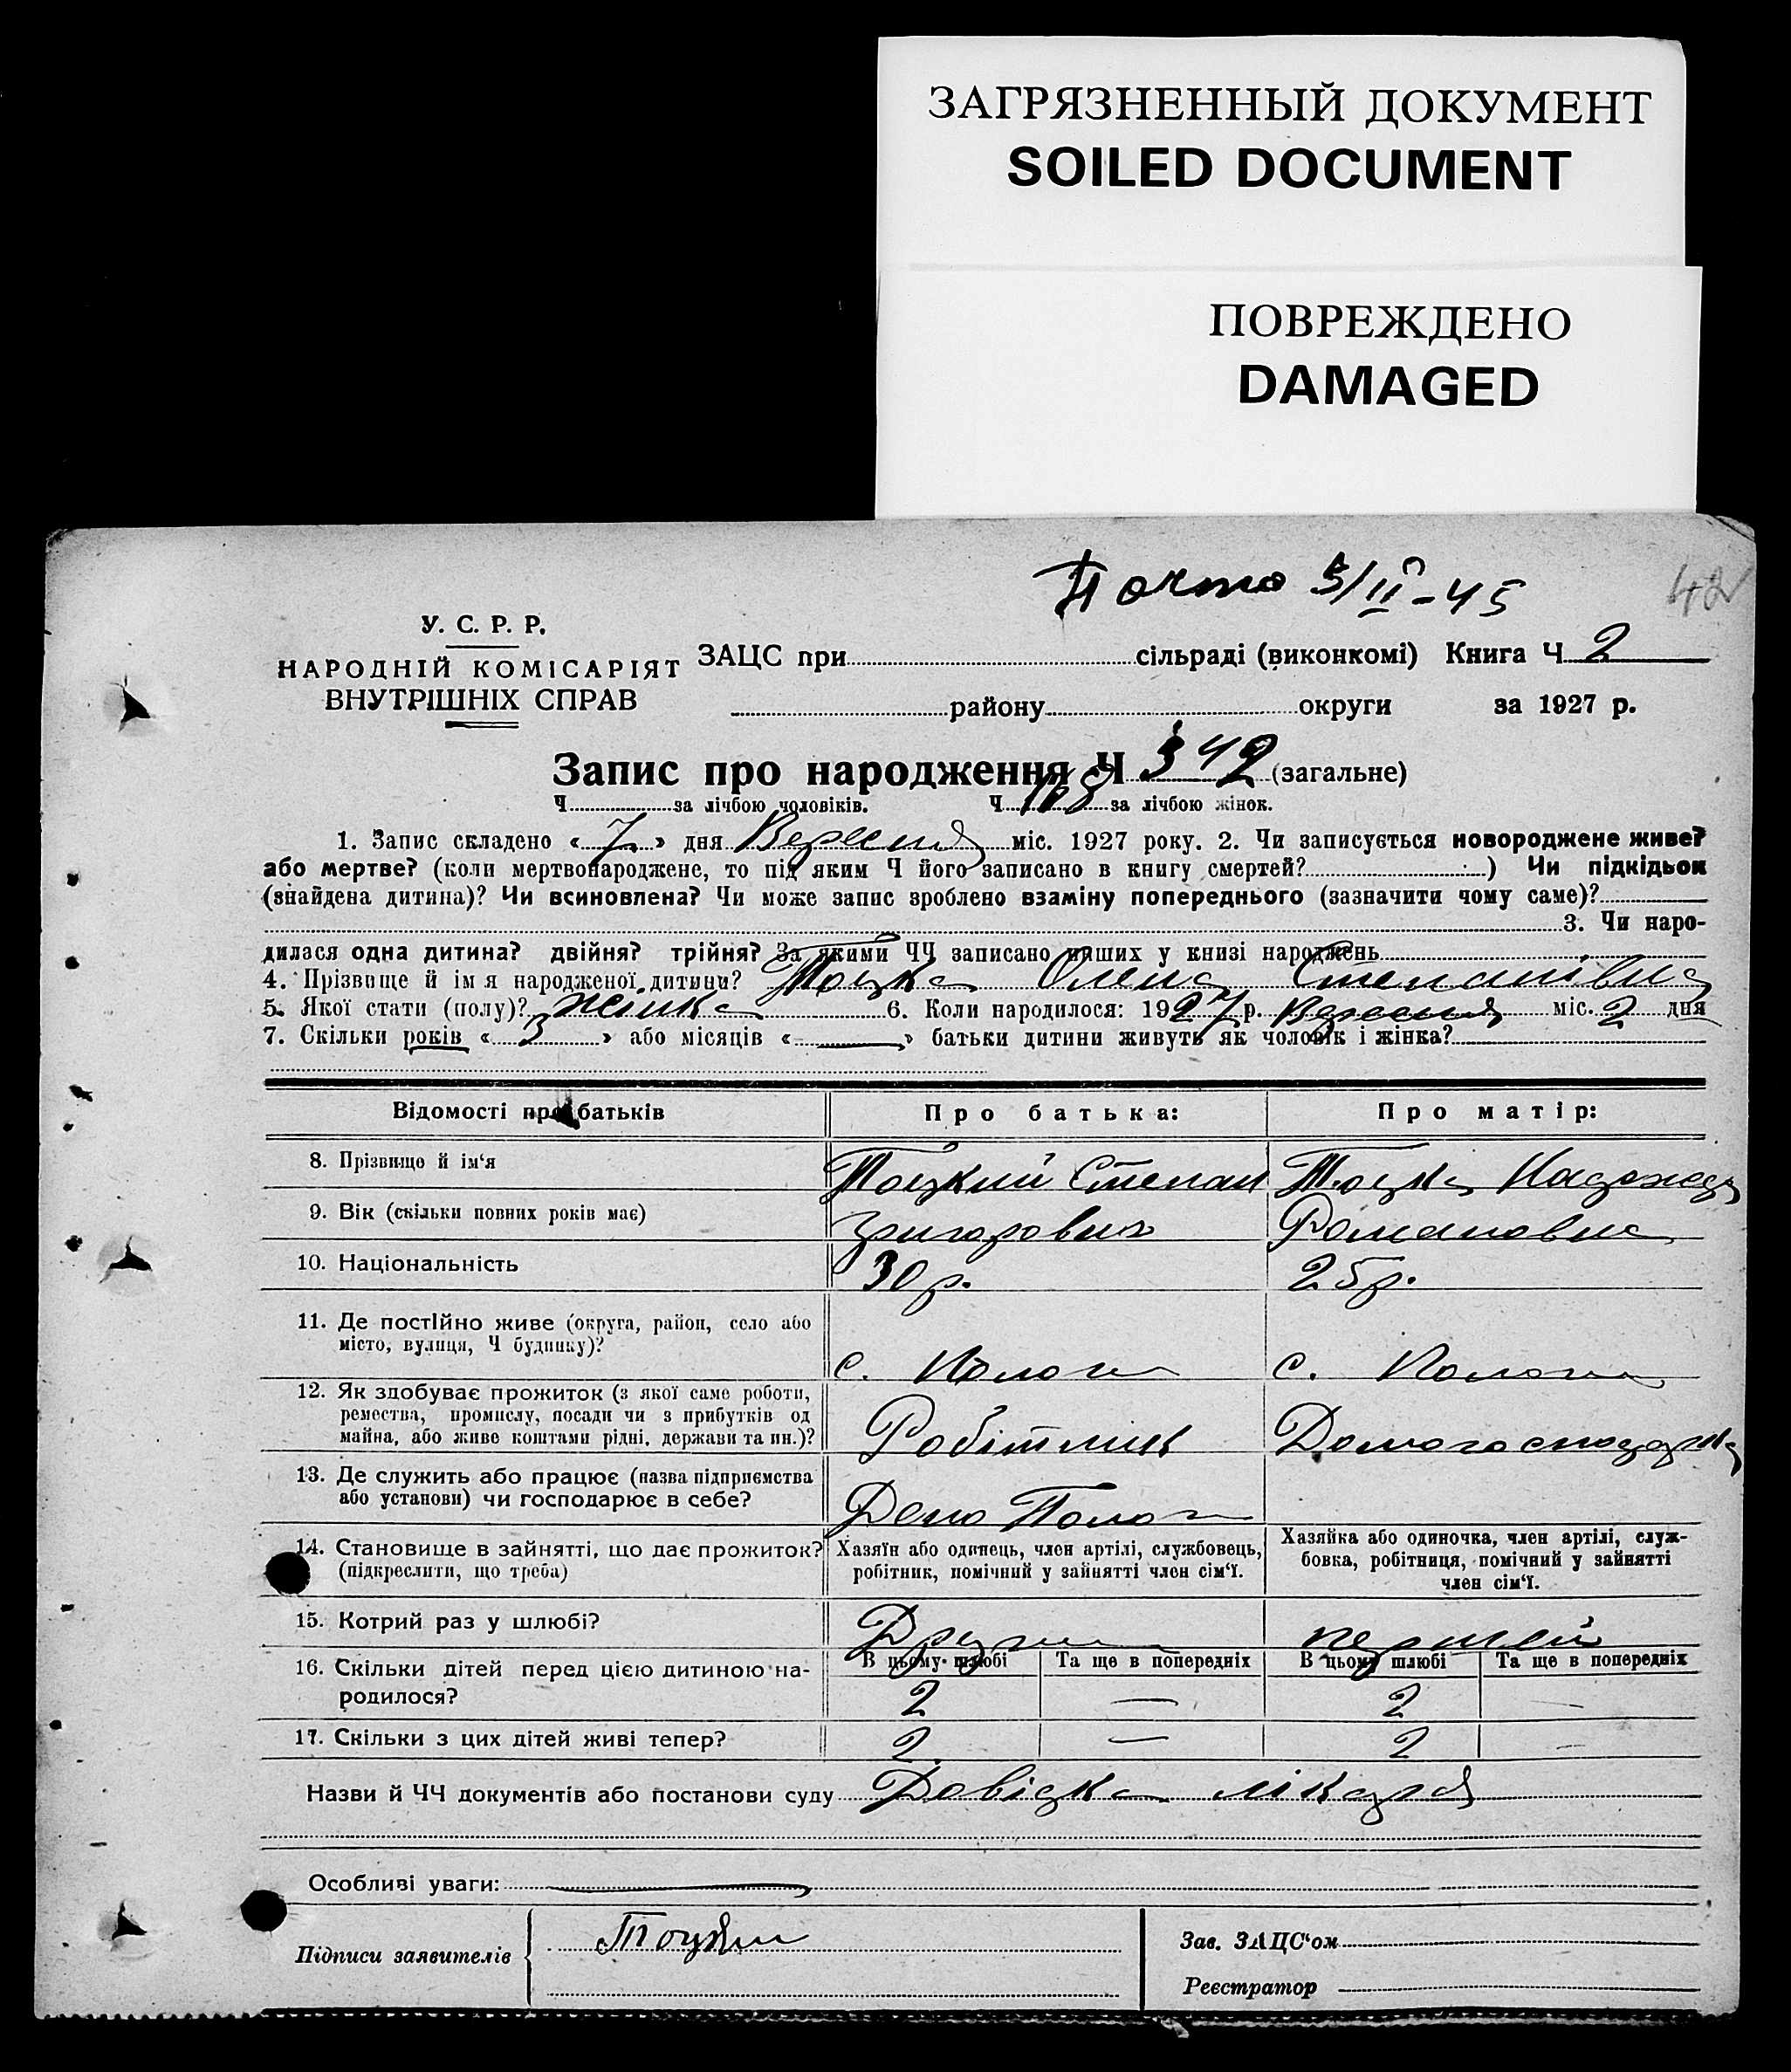 ЗАГРЯЗНЕННЫЙ ДОКУМЕНТ
SOILED DOCUMENT
ПОВРЕЖДЕНО
DAMAGED
5/II-45
42
У. С. Р. Р.
НАРОДНІЙ КОМІСАРІЯТ
ВНУТРІШНІХ СПРАВ
ЗАЦС при сільраді (виконкомі) Книга Ч. 2
району округи за 1927 р.
Запис про народження Ч 342 (загальне)
Ч за лічбою чоловіків. Ч 168 за лічбою жінок.
1. Запис складено « 7 » дня Вересня міс. 1927 року. 2. Чи записується новороджене живе?
або мертве? (коли мертвонароджене, то під яким Ч його записано в книгу смертей? ) Чи підкідьок
(знайдена дитина)? Чи всиновлена? Чи може запис зроблено взаміну попереднього (зазначити чому саме)?
3. Чи наро-
дилася одна дитина? двійня? трійня? За якими ЧЧ записано инших у книзі народжень
4. Прізвище й ім я народженої дитини? Тоцка Олена Степанівна
5. Якої статі (полу)? жінка 6. Коли народилося: 1927 р. Вересня міс. 2 дня
7. Скільки років « 3 » або місяців « — » батьки дитини живуть як чоловік і жінка?
Відомості про батьків Про батька: Про матір:
8. Прізвище й ім‘я Тоцкий Степан Тоцка Надежда
9. Вік (скільки повних років має) Григорович Романовна
10. Національність 30 р. 25 р.
11. Де постійно живе (округа, район, село або
місто, вулиця, Ч будинку)? с. Пологи с. Пологи
12. Як здобуває прожиток (з якої саме роботи,
ремества, промислу, посади чи з прибутків од
майна, або живе коштами рідні, держави та ин.)? Робітник Домогосподарка
13. Де служить або працює (назва підприємства
або установи) чи господарює в себе? Депо Пологи
14. Становище в зайнятті, що дає прожиток?
(підкреслити, що треба)
Хазяїн або одинець, член артілі, службовець,
робітник, помічний у зайнятті член сім‘ї.
Хазяйка або одиночка, член артілі, служ-
бовка, робітниця, помічний у зайнятті
член сім‘ї.
15. Котрий раз у шлюбі? первшей
16. Скільки дітей перед цією дитиною на-
родилося?
В цьому шлюбі Та ще в попередніх В цьому шлюбі Та ще в попередніх
2 — 2 —
17. Скільки з цих дітей живі тепер? 2 — 2 —
Назви й ЧЧ документів або постанови суду Довідка лікаря
Особливі уваги: —
Підписи заявителів Тоцкий
Зав. ЗАЦС‘ом
Реєстратор